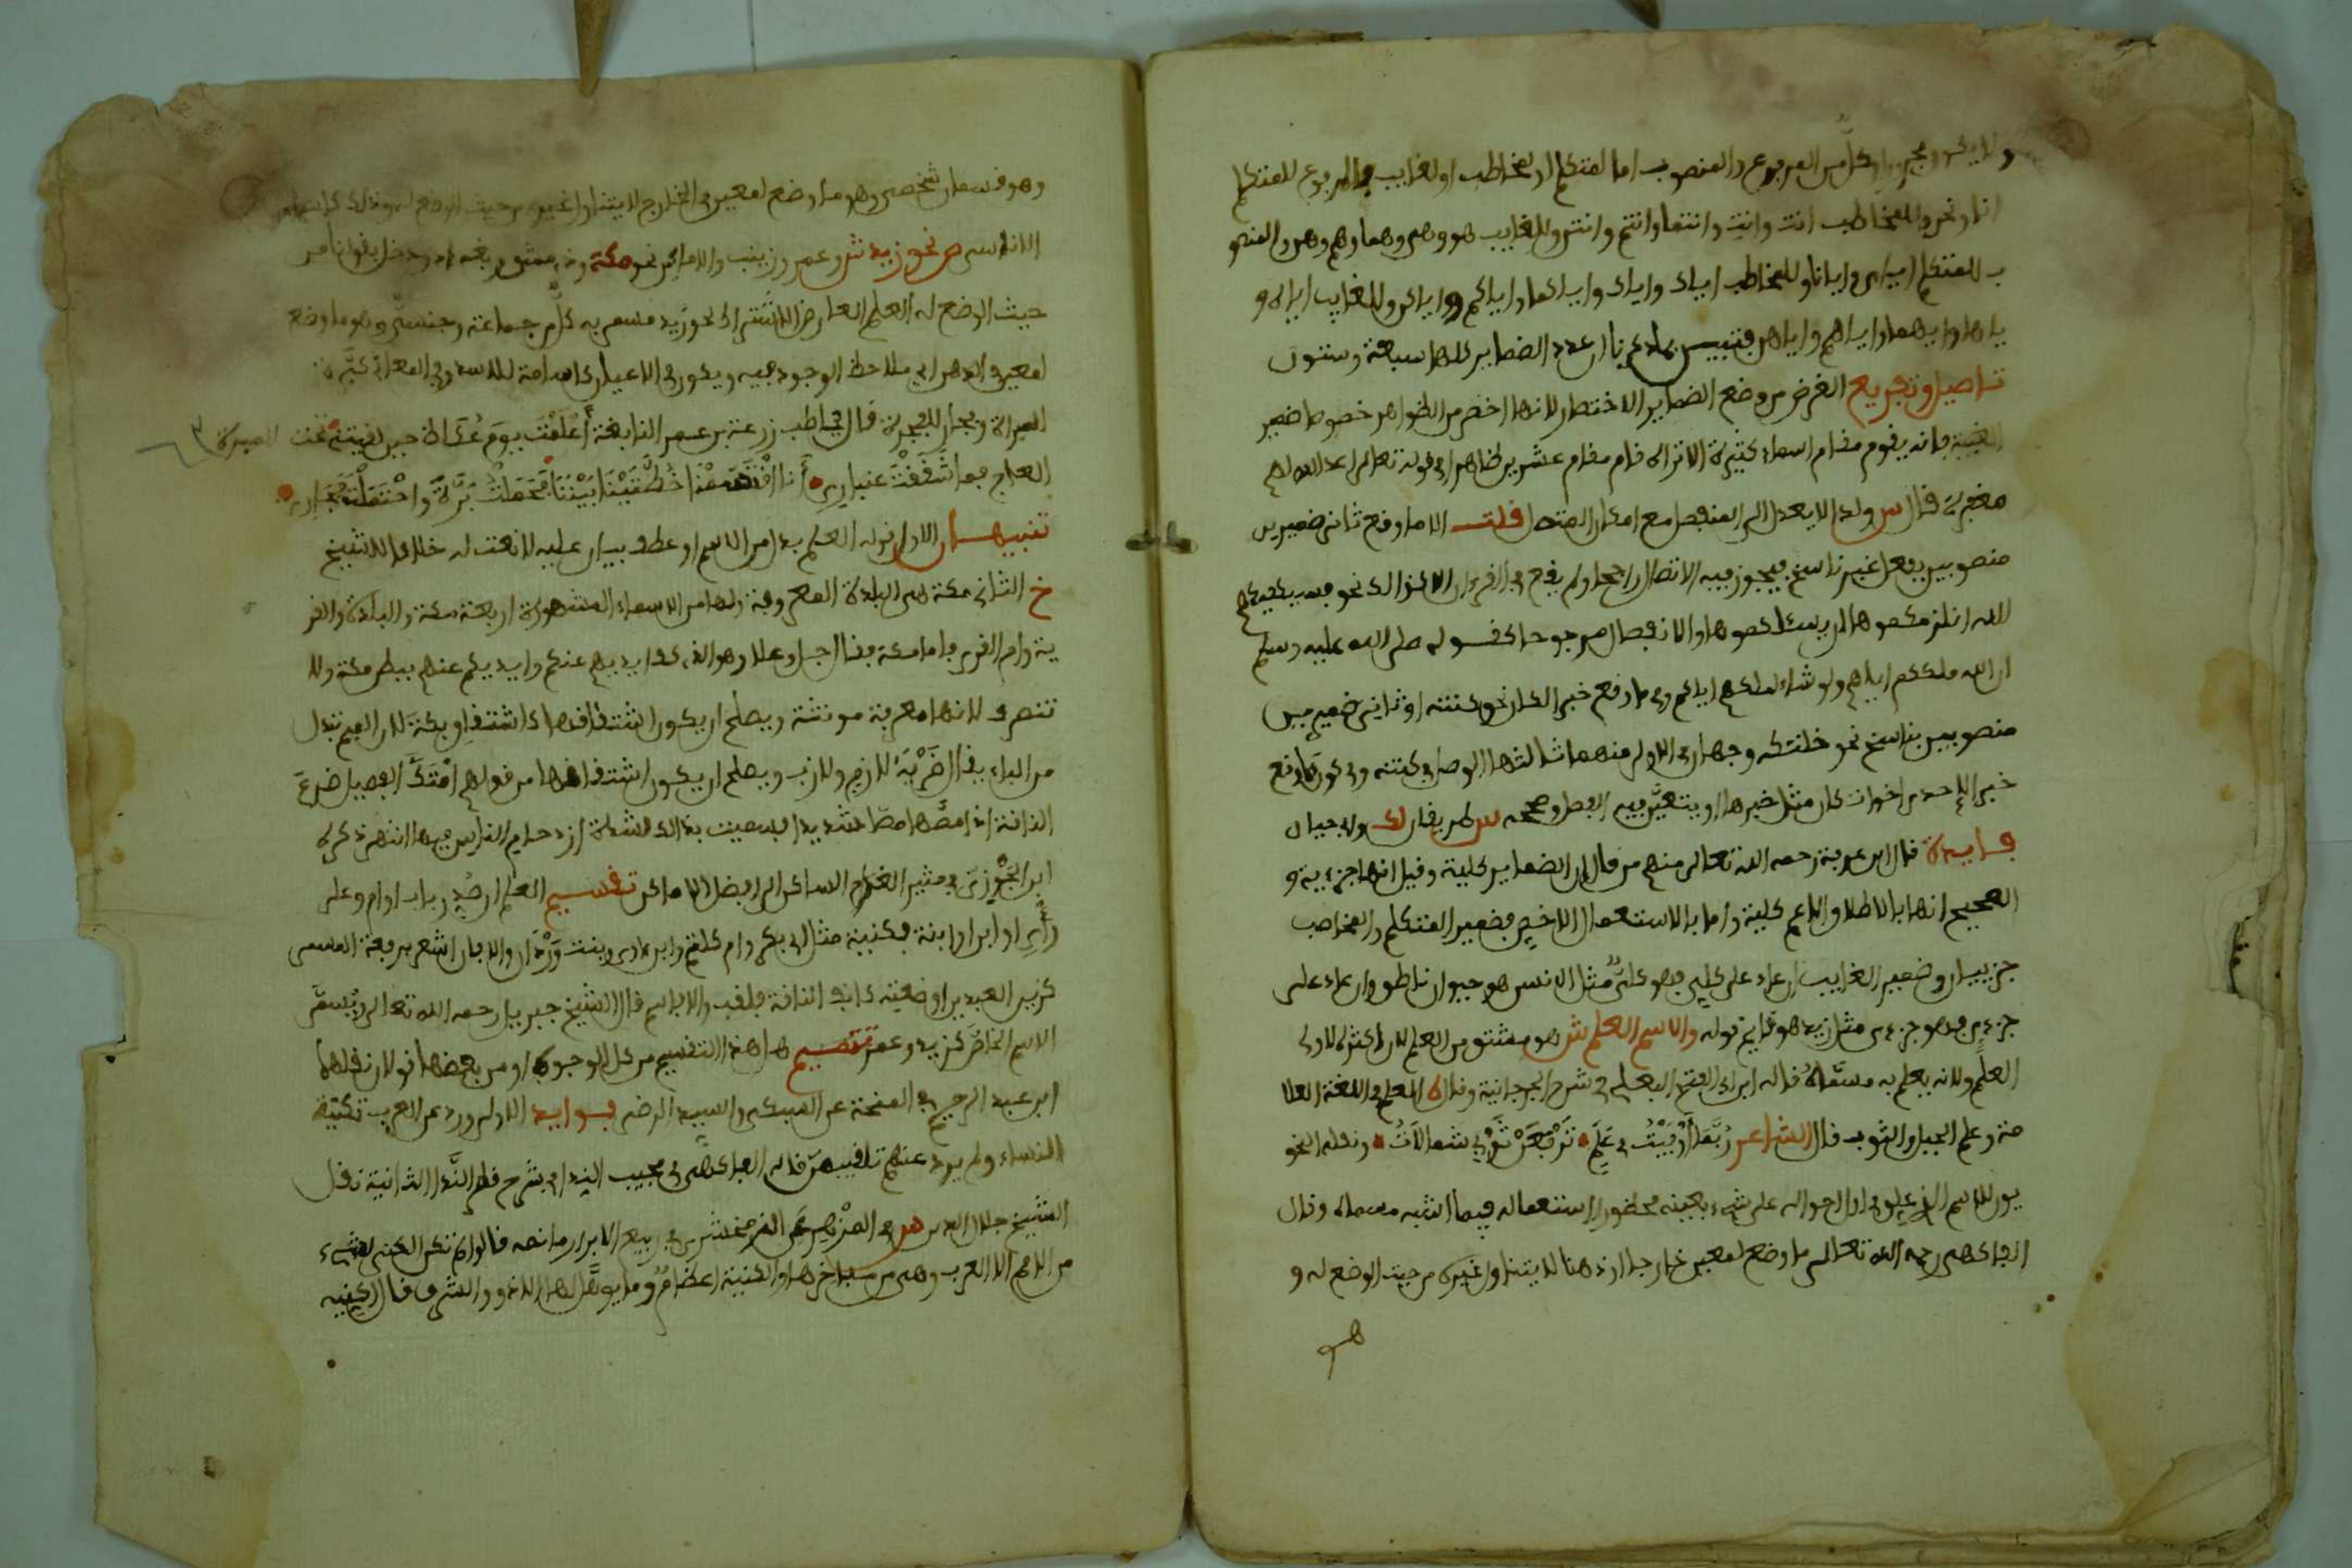 ولا يكون مجرورا وكل من المرفوع والمنصوب اما لمتكلم او لمخاطب او لغايب فالمرفوع للمتكلم
انا ونحن وللمخاطب انت وانت وانتما وانتم وانتن وللغايب هو وهي وهما وهم وهن والمنصو
ب للمتكلم اياي وايانا وللمخاطب اياك واياك واياكما واياكم واياكن وللغايب اياه و
ياها واياهما واياهم واياهن فتبين بما ذكرنا ان عدد الضماير كلها سبعة وستون
تاصيل وتفريع الغرض من وضع الضماير الاختصار لانها اخصر من الظواهر خصوصا ضمير
الغيبة فانه يقوم مقام اسماء كثيرة الا تراه قام مقام عشرين ظاهرا في قوله تعالى اعد الله لهم
مغفرة قال س ولذا لا يعدل الى المنفصل مع امكان المتصل قلت الا ما وقع ثاني ضميرين
منصوبين بفعل غير ناسخ فيجوز فيه الاتصال راجحا ولم يقع في القرءان الا كذالك نحو فسيكفيكهم
الله انلزمكموها ان يسئلكموها والانفصال مرجوحا كقوله صلى الله عليه وسلم
ان الله ملككم اياهم ولو شاء لملكهم اياكم وفي ما وقع خبر الكان نحو كنته او ثاني ضميرين
منصوبين بناسخ نحو خلتكه وجهان في الاول منهما ثالثها الوصل في كنته وفي كون ما وقع
خبر الاحد من اخوات كان مثل خبرها او يتعين فيه الفصل وصححه س طريقان لك ولابي حيان
فايدة قال ابن عرفة رحمه الله تعالى منهم من قال ان الضماير كلية وقيل انها جزءية و
الصحيح انها بالاطلاق الاعم كلية واما بالاستعمال الاخص فضمير المتكلم والمخاطب
جزييان وضمير الغايب ان عاد على كلي فهو كلي مثل الانسن هو حيوان ناطق وان عاد على
جزءي فهو جزءي مثل زيد هو قايم قوله والاسم العلم ش هو مشتق من العلم لان اكثره لاولي
العلم ولانه يعلم به مسماه قاله ابن ابي الفتح البعلي في شرح الجرجانية وقال العلم في اللغة العلا
مة وعلم الجبل والثوب قال الشاعر ربما اوفيت في علم ترفعن ثوبي شمالات ونقله النحو
يون للاسم الذي علق في اول احواله على شيء بعينه محظور استعماله فيما اشبه مسماه وقال
الفاكهي رحمه الله تعالى ما وضع لمعين خارجا او ذهنا لا يتناول غيره من حيث الوضع له و
هو
وهو قسمان شخصي وهو ما وضع لمعين في الخارج لا يتناول غيره من حيث الوضع له وذلك كاسماء
الاناسي ص نحو زيد ش وعمر وزينب والاماكن نحو مكة ودمشق وبغداد ودخل بقولنا من
حيث الوضع له العلم العارض الاشتراك نحو زيد مسمى به كل من جماعة وجنسي وهو ما وضع
لمعين في الذهن اي ملاحظ الوجود فيه ويكون في الاعيان كاسامة للاسد وفي المعاني كبرة
للمبرة وفجار للفجرة قال يخاطب زرعة بن عمر النابغة اعلمت يوم عكاظ حين لقيتني تحت
العجاج فما شققت غباري انا اقتسمنا خطتينا بيننا فحملت برة واحتملت فجار
تنبيهان الاول قوله العلم بدل من الاسم او عطف بيان عليه لا نعت له خلافا للشيخ
خ الثاني مكة هي البلدة المعروفة ولها من الاسماء المشهورة اربعة مكة والبلدة والقر
ية وام القرى فاما مكة فقال جل وعلا وهو الذي كف ايديهم عنكم وايديكم عنهم ببطن مكة ولا
تنصرف لانها معرفة مونثة ويصلح ان يكون اشتقاقها كاشتقاق بكة لان الميم تبدل
من الباء يقال ضربة لازم ولازب ويصلح ان يكون اشتقاقها من قولهم امتك الفصيل ضرع
الناقة اذا مصها مصا شديدا فسميت بذلك لشدة ازدحام الناس فيها انتهى ذكره
ابن الجوزي في مثير الغرام الساكن الى افضل الاماكن تقسيم العلم ان صدر باب او ام وعلى
راي او ابن او ابنة فكنية مثل ابي بكر وام كلثوم وابن دادى وبنت وردان والا فان اشعر برفعة المسمى
كزين العبدين او ضعته كانف الناقة فلقب والا فاسم قال الشيخ جبريل رحمه الله تعالى ويسمى
الاسم الخاص كزيد وعمر تتميم هل هذا التقسيم من كل الوجوه او من بعضها قولان نقلهما
ابن عبد الرحيم في المنحة عن السبكي والسيد الرضي فوايد الاول ورد عن العرب تكنية
النساء ولم يرد عنهم تلقيبهن قاله الفاكهي في مجيب الندا في شرح قطر الندا الثانية نقل
الشيخ جلال الدين في المزهر عن الزمخشري في ربيع الابرار ما نصه قالوا لم تكن الكنى لشيء
من الامم الا للعرب وهي من مفاخرها والكنية اعظام وما يوهل لها الا ذوو الشرف قال اكنيه